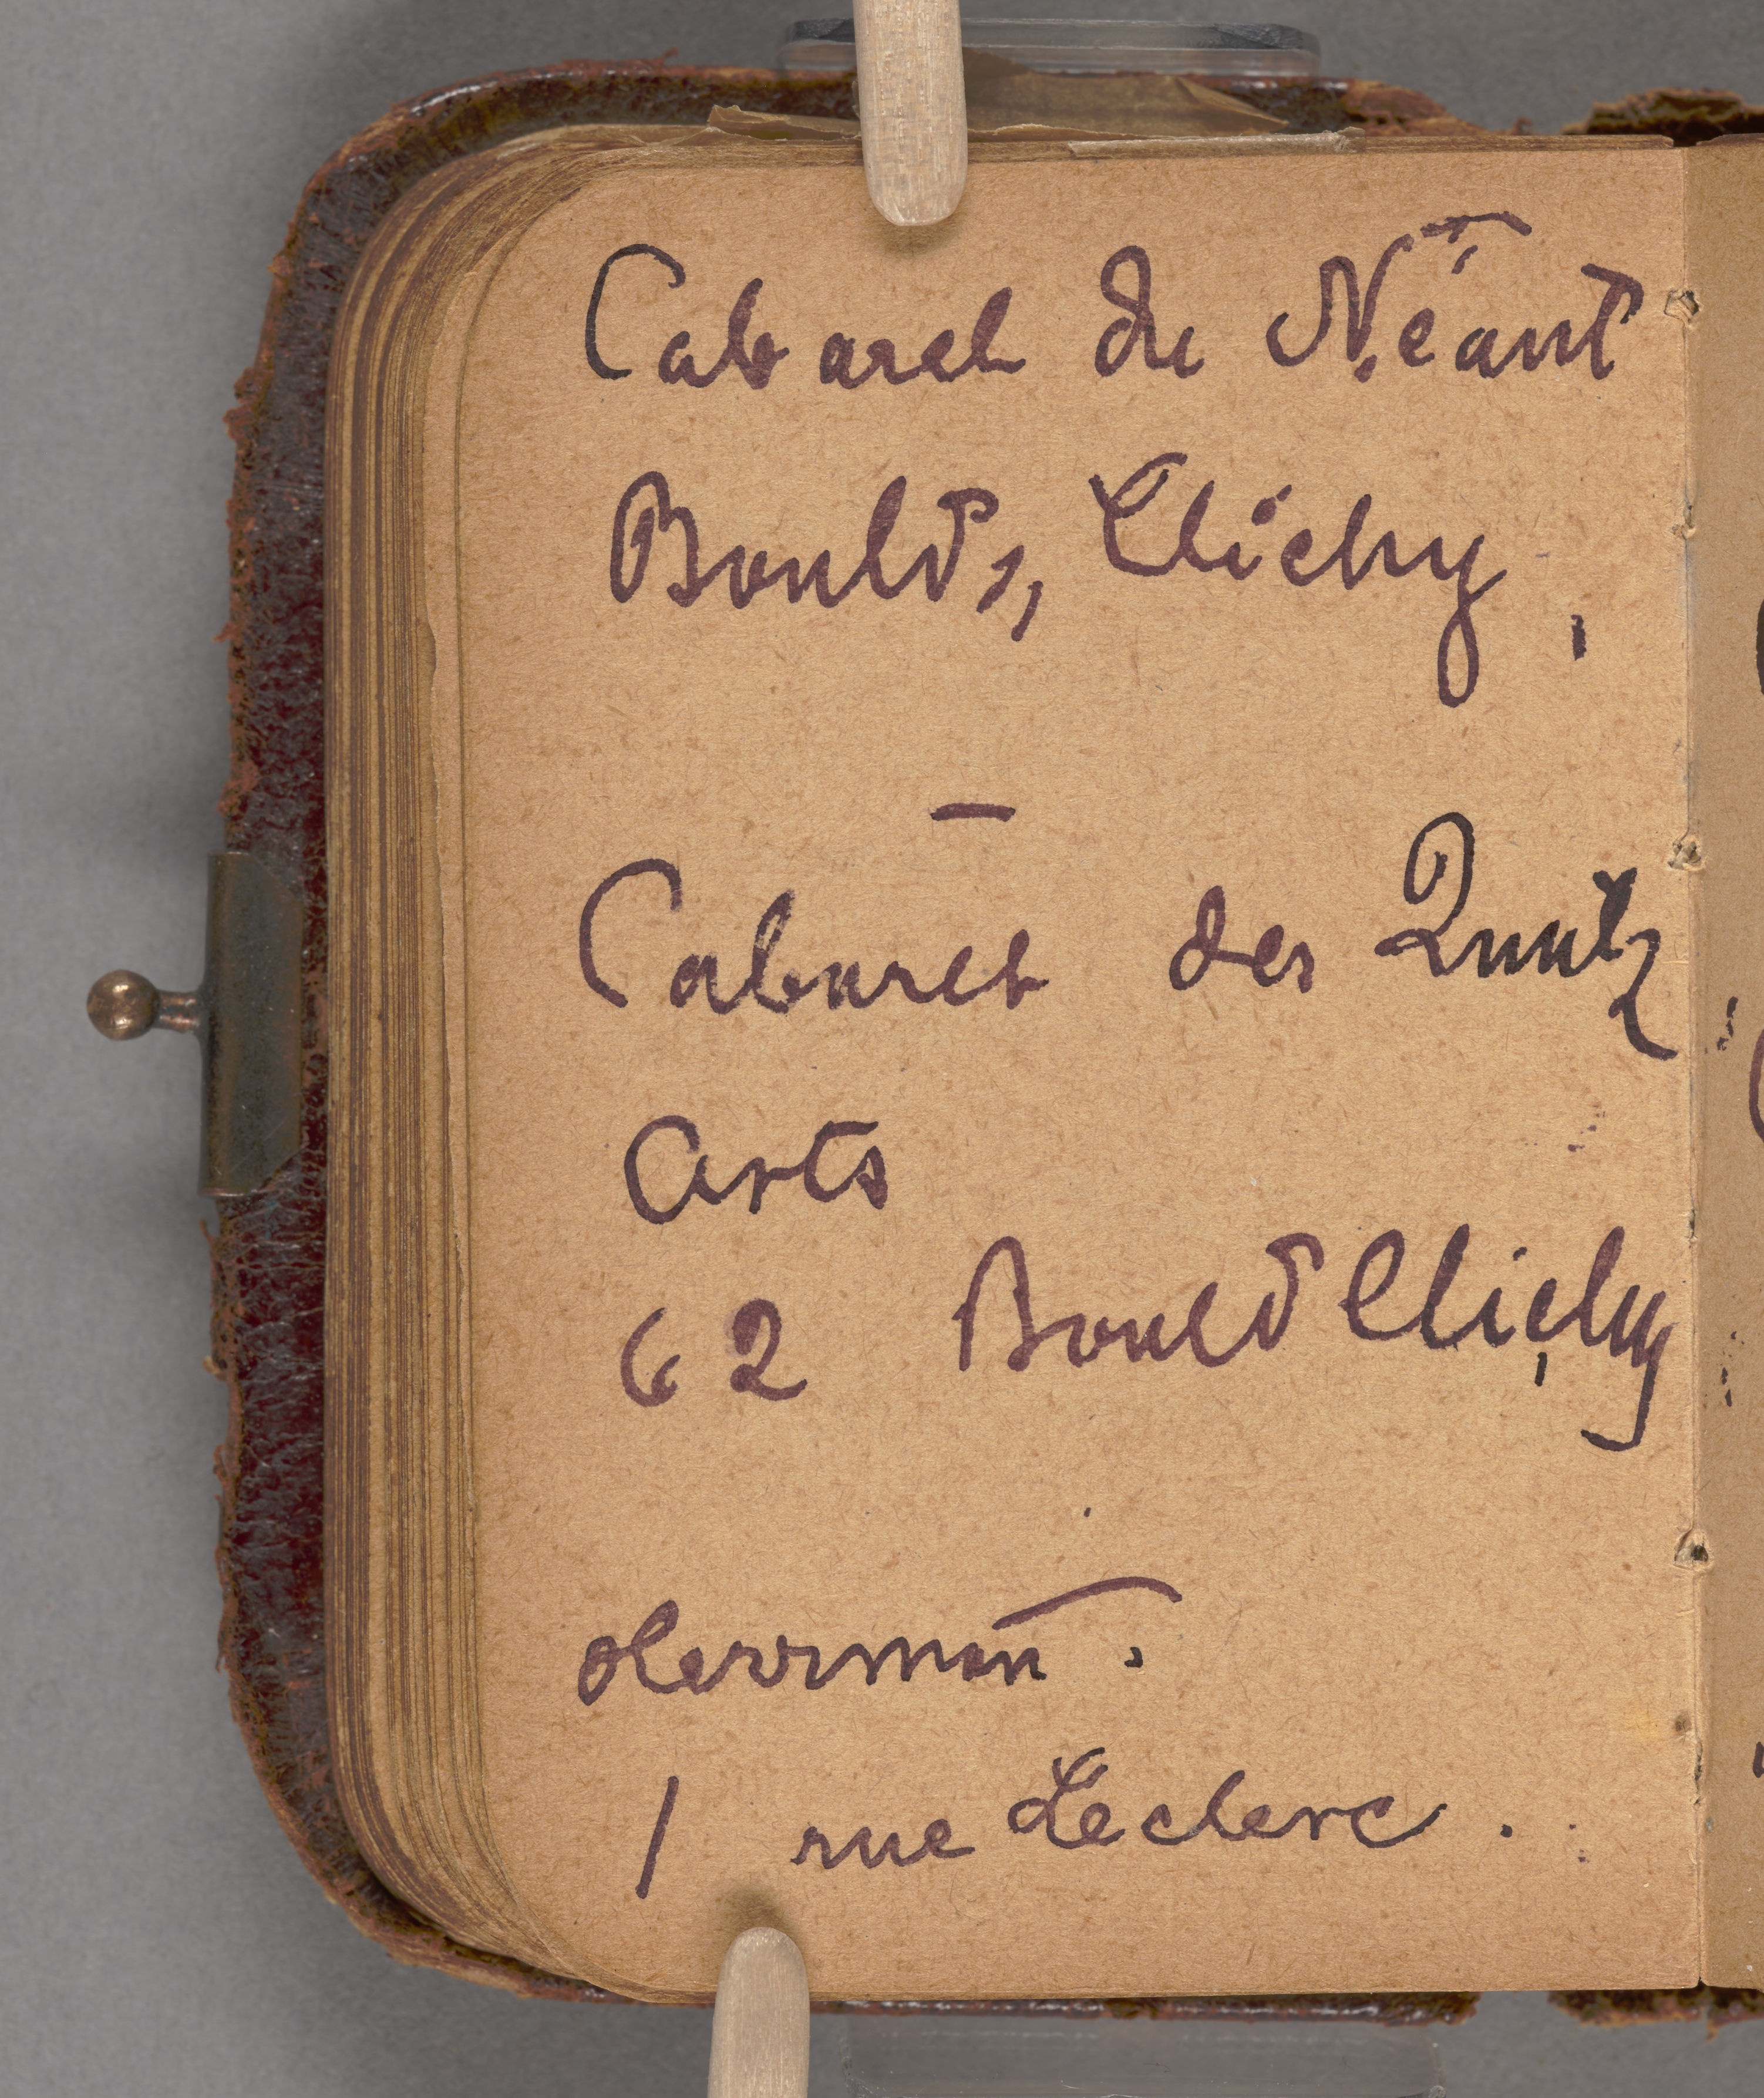 Cabaret du Néant
Bould, Clichy,
—
Cabaret des Quatz
arts
62 Bould Clichy
Herrman.
1 rue Leclerc.